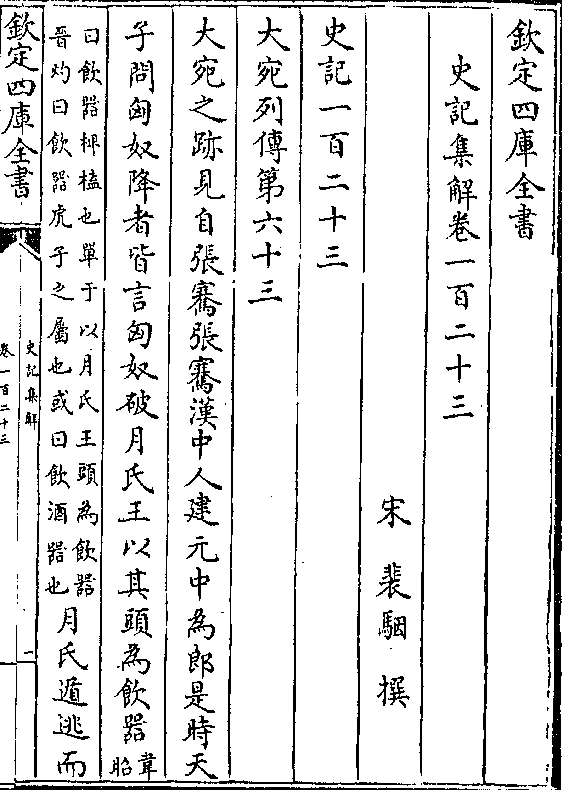 欽定四庫全書
史記集解卷一百二十三
宋 裴駰 撰
史記一百二十三
大宛列傳第六十三
大宛之跡見自張騫張騫漢中人建元中為郎是時天
子問匈奴降者皆言匈奴破月氏王以其頭為飲器韋昭
曰飲器椑榼也單于以月氏王頭為飲器
晉灼曰飲器虎子之屬也或曰飲酒器也
月氏遁逃而
欽定四庫全書
史記集解
卷一百二十三
一